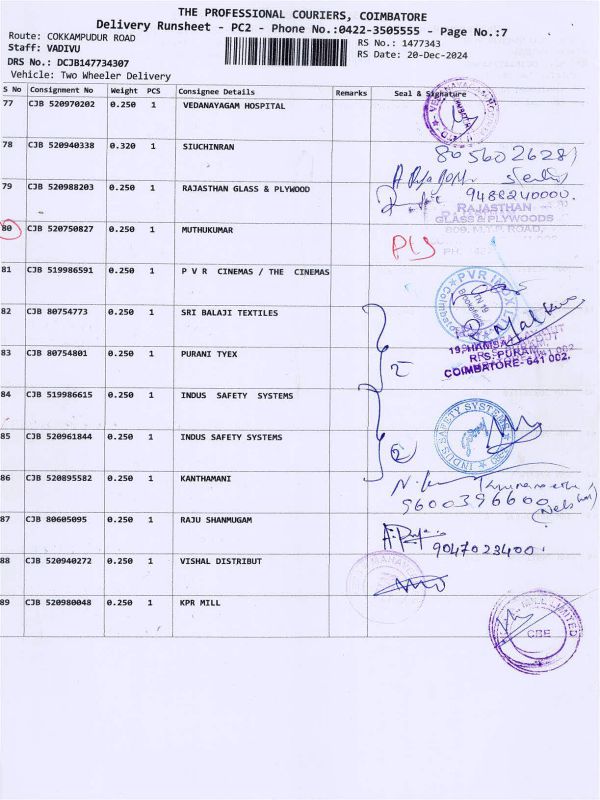 THE PROFESSIONAL COURIERS, COIMBATORE
Delivery Runsheet - PC2 - Phone No.:0422-3505555 - Page No.:7
Route: COKKAMPUDUR ROAD
RS No.: 1477343
Staff: VADIVU
RS Date: 20-Dec-2024
DRS No.: DCJB147734307
Vehicle: Two Wheeler Delivery
S No Consignment No Weight PCS Consignee Details Remarks Seal & Signature
77 CJB 520970202 0.250 1 VEDANAYAGAM HOSPITAL
78 CJB 520940338 0.320 1 SIUCHINRAN
8056026281
79 CJB 520988203 0.250 1 RAJASTHAN GLASS & PLYWOOD
9486240000.
RAJASTHAN
GLASS & PLYWOODS
609, M.T.P. ROAD,
80 CJB 520750827 0.250 1 MUTHUKUMAR
PLS
81 CJB 519986591 0.250 1 P V R CINEMAS / THE CINEMAS
82 CJB 80754773 0.250 1 SRI BALAJI TEXTILES
83 CJB 80754801 0.250 1 PURANI TYEX
2
R.S. PURAM
COIMBATORE-641 002.
84 CJB 519986615 0.250 1 INDUS SAFETY SYSTEMS
INDUS SAFETY SYSTEMS
85 CJB 520961844 0.250 1 INDUS SAFETY SYSTEMS
2
86 CJB 520895582 0.250 1 KANTHAMANI
9600396600
87 CJB 80605095 0.250 1 RAJU SHANMUGAM
9047023400.
88 CJB 520940272 0.250 1 VISHAL DISTRIBUT
89 CJB 520980048 0.250 1 KPR MILL
MILL LIMITED
CBE